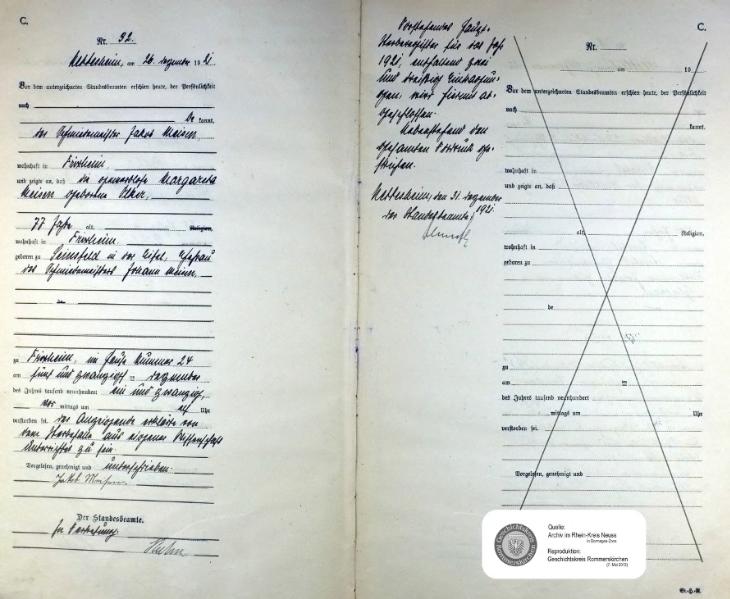 C.
Nr. 32.
Nettesheim, am 26. Dezember 1921
Vor dem unterzeichneten Standesbeamten erschien heute, der Persönlichkeit
nach
be kannt,
der Schmiedemeister Jakob Meisen,
wohnhaft in Frixheim
und zeigte an, daß die gewerblose Margareta
Meisen geborene
77 Jahre alt, Religion,
wohnhaft in Frixheim
geboren zu in der Eifel, Ehefrau
des Schmiedemeisters Johann Meisen,
zu Frixheim, im Hause Nummer 24
am fünf und zwanzigsten Dezember
des Jahres tausend neunhundert ein und zwanzig,
vor mittags um elf Uhr
verstorben sei. Der Anzeigende erklärte von
dem Sterbefalle aus eigener Wissenschaft
unterrichtet zu sein.
Vorgelesen, genehmigt und unterschrieben.
Jakob Meisen
Der Standesbeamte.
In Vertretung.
Vorstehendes Haupt-
Sterberegister für das Jahr
1921, enthaltend zwei
und dreißig Eintragun-
gen, wird hiermit ab-
geschlossen.
Nebenstehend den
gesamten Vordruck ge-
strichen.
Nettesheim, den 31. Dezember
1921.
Der Standesbeamte,
C.
Nr.
am 19
Vor dem unterzeichneten Standesbeamten erschien heute, der Persönlichkeit
nach
kannt,
wohnhaft in
und zeigte an, daß
alt, Religion,
wohnhaft in
geboren zu
be
zu
am ten
des Jahres tausend neunhundert
mittags um Uhr
verstorben sei.
Vorgelesen, genehmigt und
Quelle:
Archiv im Rhein-Kreis Neuss
in Dormagen-Zons
Reproduktion:
Geschichtskreis Rommerskirchen
St.-H.-R.